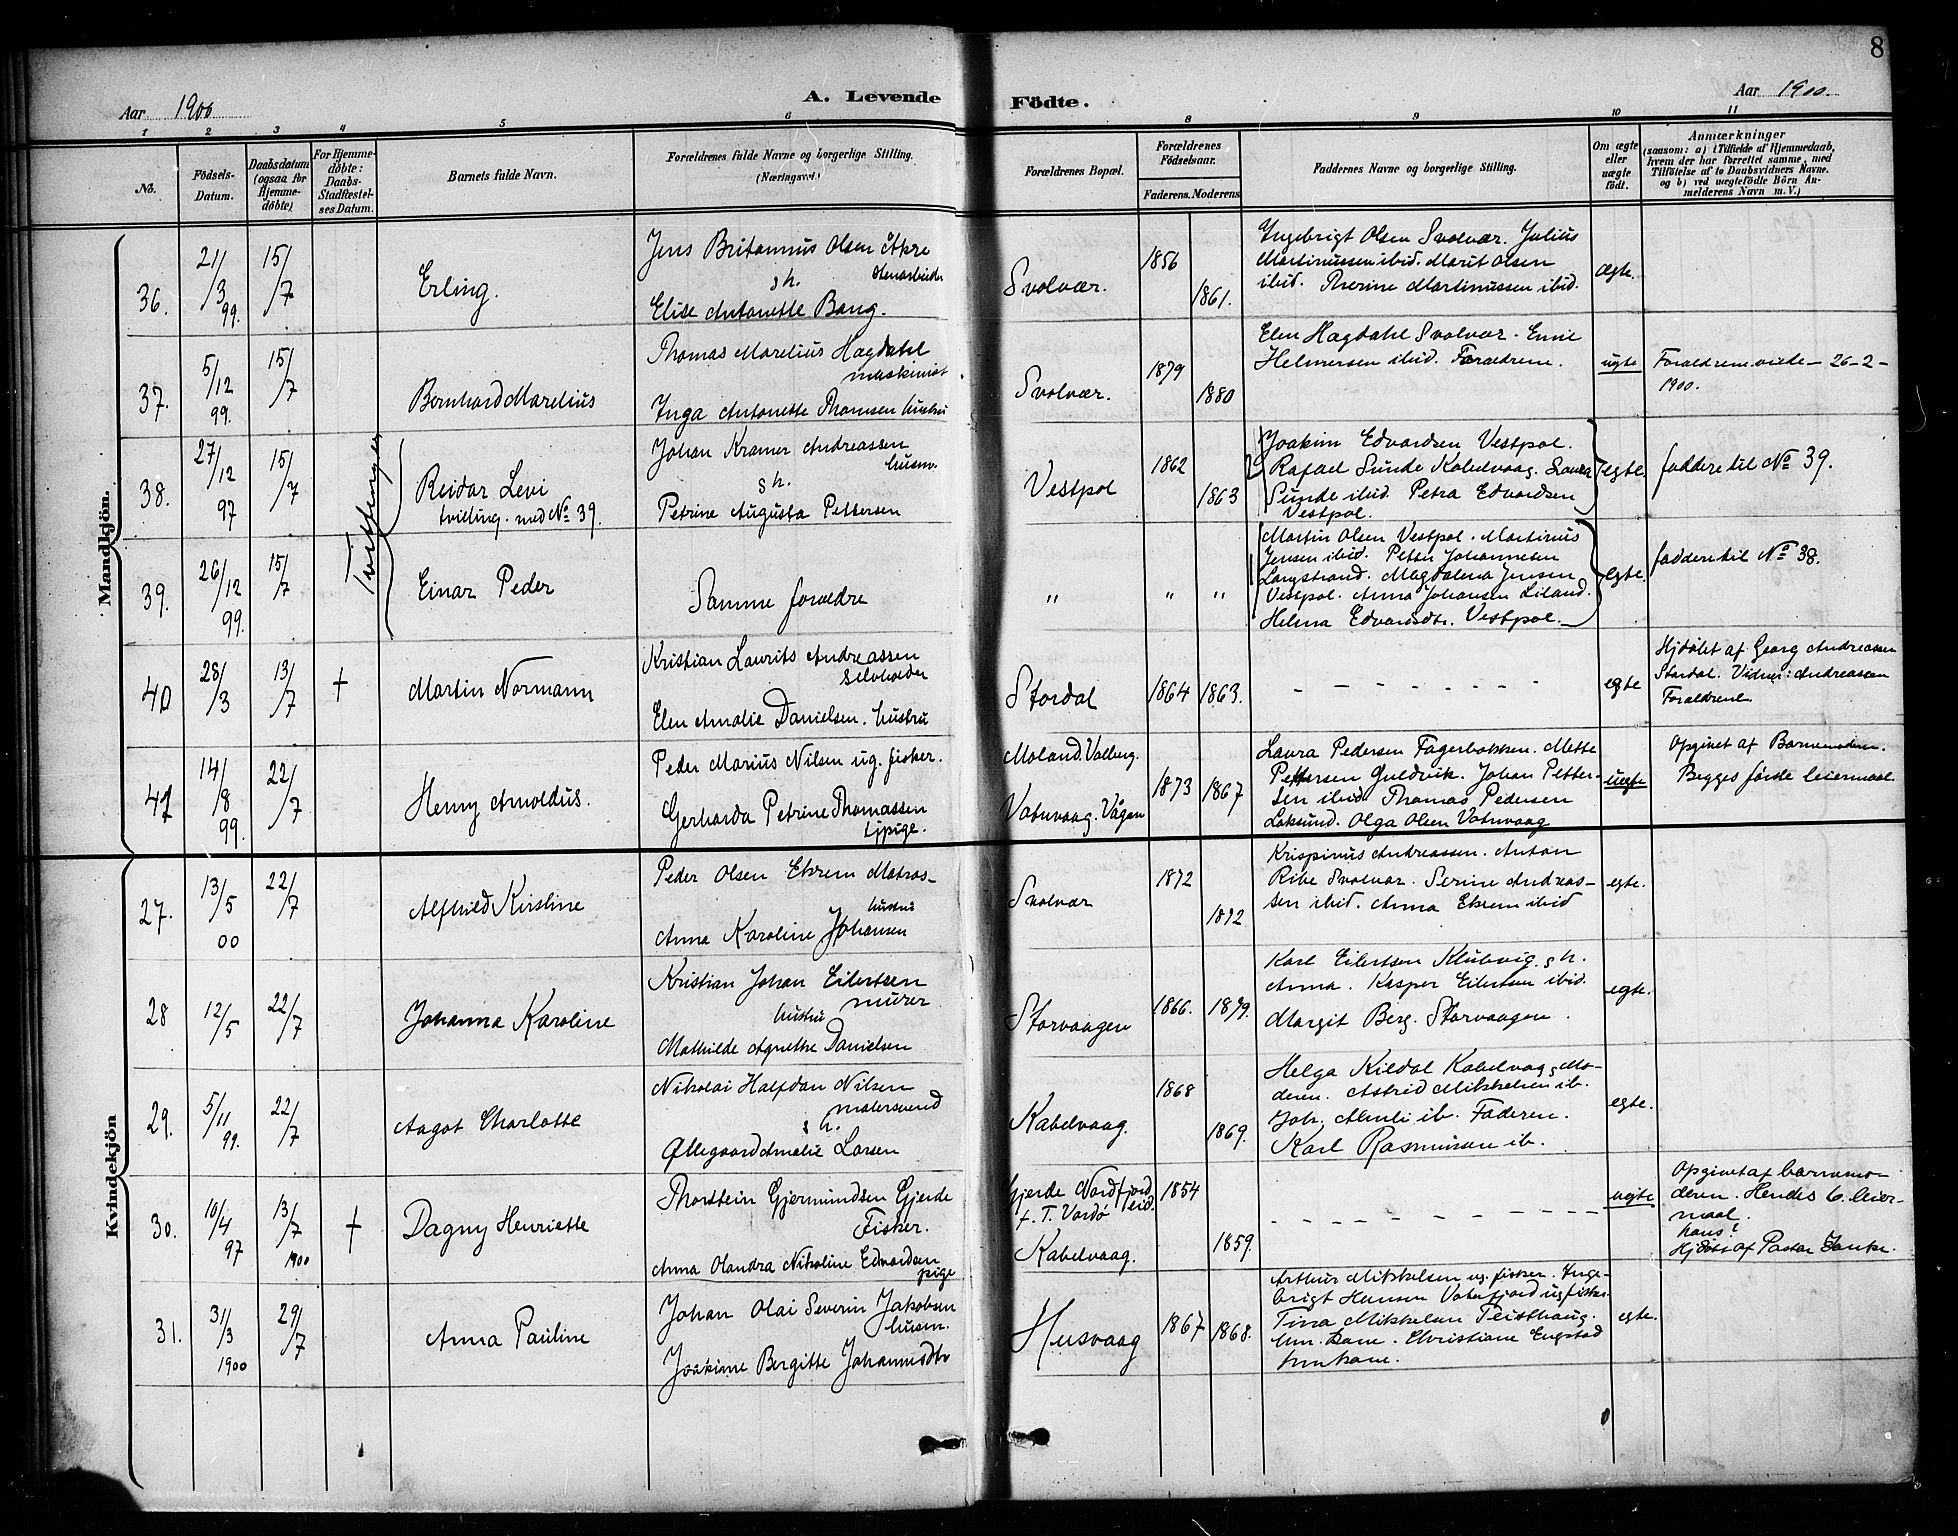 8
Aar 1900
A. Levende
Födte.
Aar 1900.
1 2 3 4 5 6 8 9 10 11
No.
Födsels-
Datum.
Daabsdatum
(ogsaa for
Hjemme-
döbte)
For Hjemme-
döbte:
Daabs-
Stadfæstel-
ses Datum.
Barnets fulde Navn.
Forældrenes fulde Navne og borgerlige Stilling.
(Næringsvei.)
Forældrenes Bopæl.
Forældrenes
Födselsaar.
Faderens. Moderens.
Faddernes Navne og borgerlige Stilling.
Om ægte
eller
uægte
født.
Anmærkninger
(saasom: a) i Tilfælde af Hjemmedaab,
hvem der har forrettet samme, med
Tilföielse af to Daabsvidners Navne.
og b) ved uægtefödte Börn An-
melderens Navn m. V.)
Mandkjön.
36.
21/3
99.
15/7
Erling.
Jens Britannius Olsen
s h.
Elise Antonette Bang.
Svolvær.
1856
1861.
Ingebrigt Olsen Svolvær. Julius
Martinussen ibid. Marit Olsen
ibid. Therine Martinussen ibid.
ægte.
37.
5/12
99.
15/7
Bernhard Marelius
Thomas Marelius Hagdahl
maskinist
Inga Antonette Thomsen hustru
Svolvær.
1879
1880
Elen Hagdahl Svolvær. Emil
Helmersen ibid. Forældrene.
ugte
Forældrene viede - 26-2-
1900.
38.
27/12
97
15/7
Tvillinger
Reidar Levi
tvilling. med No 39.
Johan Kramer Andreassen
husm.
s h.
Petrine Augusta Pettersen
Vestpol
1862
1863
Joakim Edvardsen Vestpol.
Rafael Sunde Kabelvaag. Laura
Sunde ibid. Petra Edvardsen
Vestpol.
egte.
faddere til No 39.
39.
26/12
99.
15/7
Einar Peder
Samme forældre
" " "
Martin Olsen Vestpol. Martinus
Jensen ibid. Petter Johannesen
Langstrand. Magdalena Jensen
Vestpol. Anna Johansen Liland.
Helma Edvardsdtr. Vestpol.
egte.
faddere til No 38.
40
28/3
13/7
†
Martin Normann
Kristian Laurits Andreassen
selveier
Elen Amalie Danielsen. hustru
Stordal
1864
1863.
- - - - - - - -
egte
Hjdøbt af Georg Andreassen
Stordal. Vidner: Andreassen
Forældrene
41
14/8
99.
22/7
Henry Arnoldus.
Peder Marius Nilsen ug. fisker.
Gerharda Petrine Thomassen
tjpige.
Moland. Valberg.
Vatnvaag. Vågan
1873
1867
Laura Pedersen Fagerbakken. Mette
Pettersen Guldvik. Johan Petter-
sen ibid. Thomas Pedersen
Laksund. Olga Olsen Vatnvaag
uægte
Opgivet af Barnemoderen.
Begges første leiermaal
Kvindekjön
27.
13/5
00
22/7
Alfhild Kirstine
Peder Olsen Ekrem Matros-
hustru
Anna Karoline Johansen
Svolvær
1872
1872
Krispinus Andreassen. Anton
Ribe Svolvær. Serine Andreas-
sen ibid. Anna Ekrem ibid
egte.
28
12/5
22/7
Johanna Karoline
Kristian Johan Eilertsen
murer
hustru
Mathilde Agnethe Danielsen
Storvaagen
1866.
1879.
Karl Eilertsen Klubvig. s h.
Anna. Kasper Eilertsen ibid.
Margit Berg. Storvaagen.
egte.
29.
5/11
99.
22/7
Aagot Charlotte
Nikolai Halfdan Nilsen
malersvend
s h.
Øllegaard Amalie Larsen
Kabelvaag.
1868
1869.
Helga Kildal Kabelvaag, Mo-
deren. Astrid Mikkelsen ib.
Joh. Almli ib. Faderen.
Karl Rasmussen ib.
egte.
30.
10/4
97
13/7
1900
†
Dagny Henriette
Thorstein Gjermundsen Gjerde
Fisker.
Anna Olandra Nikoline Edvardsen
pige
Gjerde Nordfjord
f. T. Vardø eid.
Kabelvaag.
1854
1859.
- - - - - - - -
uegte
Opgivet af barnemo-
deren. Hendes 6. leier-
maal.
hans?
Hjdøbt af Pastor
31.
31/3
1900
29/7
Anna Pauline
Johan Olai Severin Jakobsen
husm.
Joakime Bergitte Johannesdtr
Husvaag
1867
1868.
Arthur Mikkelsen ug. fisker. Inge-
brigt Hansen Vaterfjord ug fisker
Tina Mikkelsen Teisthaug.
hm. kone. Christiane Engstad
hm kone.
egte.